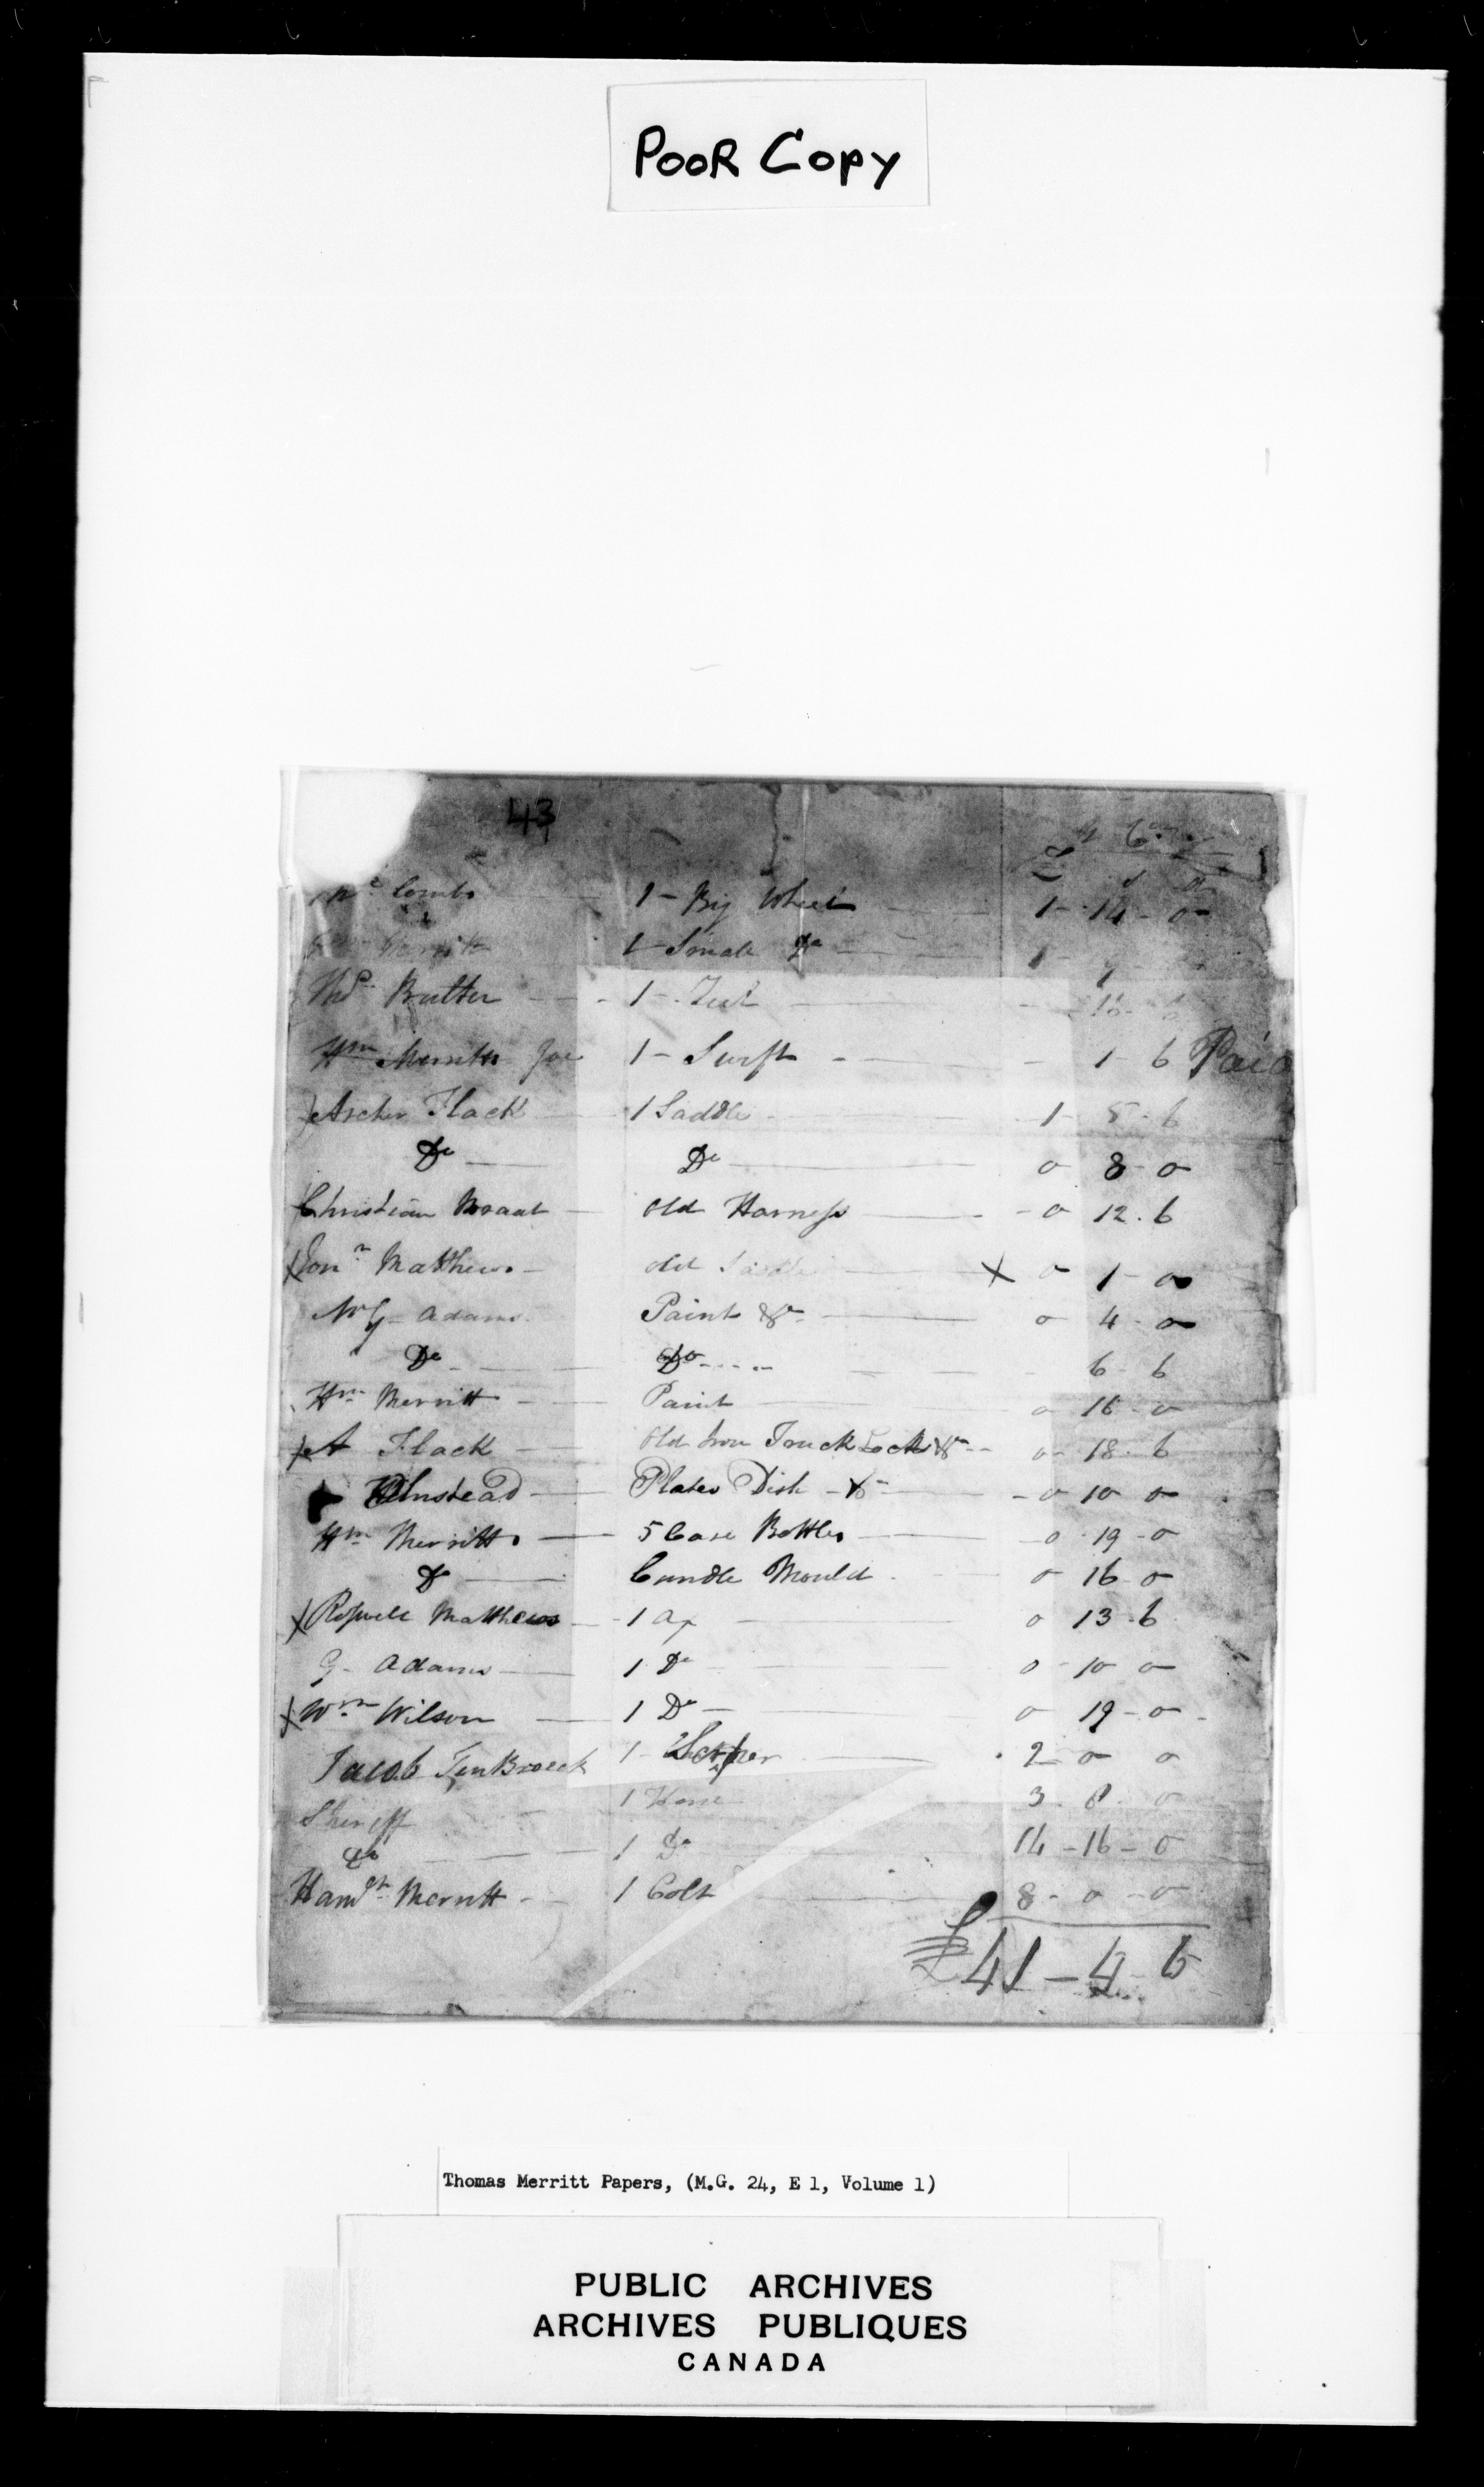 POOR COPY
43
£ s d
Mc Combs 1 - Big Wheel 1 - 14 - 0
1 - Small Do 1 -
Thos Butler 1 -
Wm Merritt 1 - Swift - 1 - 6 Paid
X Archer Flack 1 Saddle 1 - 5 - 6
Do Do 0 8 - 0
X Christian Old Harness 0 12 . 6
X Jonn Matthews old Saddle X 0 1 - 0
Adams Paint &c 0 4 - 0
Do Do 6 - 6
Hm Merritt Paint 0 16 - 0
X A Flack Old Iron Truck Lock &c 0 - 18 - 6
Olmstead Plates Dish - &c - 0 10 0
Hm Merritt 5 Case Bottles 0 - 19 - 0
Do Candle Mould 0 16 - 0
X Roswell Matthews 1 Ax 0 13 - 6
G - Adams 1 Do 0 - 10 0
X Wm Wilson 1 Do 0 19 - 0
Jacob TenBroeck 1 - 2 - 0 0
Sheriff 1 Horse 3 . 8 . 0
Do 1 Do 14 - 16 - 0
Hamltn Merritt 1 Colt 8 - 0 - 0
£41 - 4 - 6
Thomas Merritt Papers, (M.G. 24, E 1, Volume 1)
PUBLIC ARCHIVES
ARCHIVES PUBLIQUES
CANADA